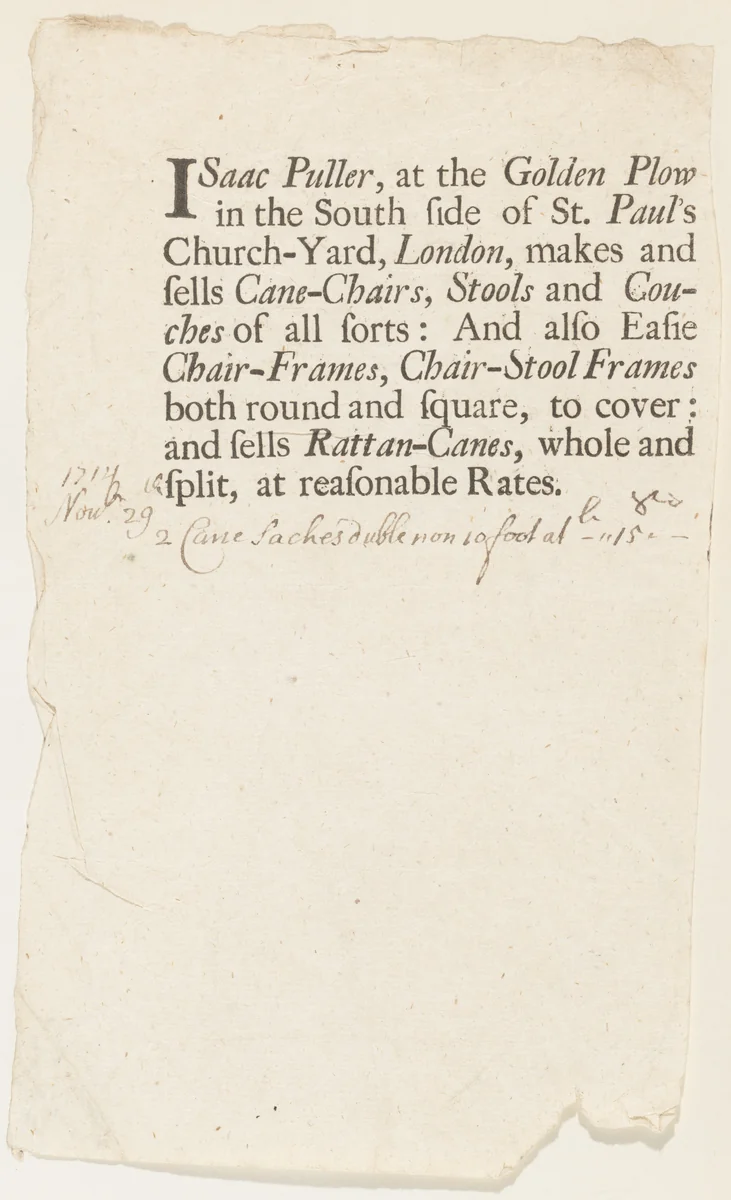 ISaac Puller, at the Golden Plow
in the South ſide of St. Paul's
Church-Yard, London, makes and
ſells Cane-Chairs, Stools and Cou-
ches of all ſorts: And alſo Eaſie
Chair-Frames, Chair-Stool Frames
both round and ſquare, to cover:
and ſells Rattan-Canes, whole and
ſplit, at reaſonable Rates.
1714
Nou. 29
2 Cane Saches duble non 10 foot at 15